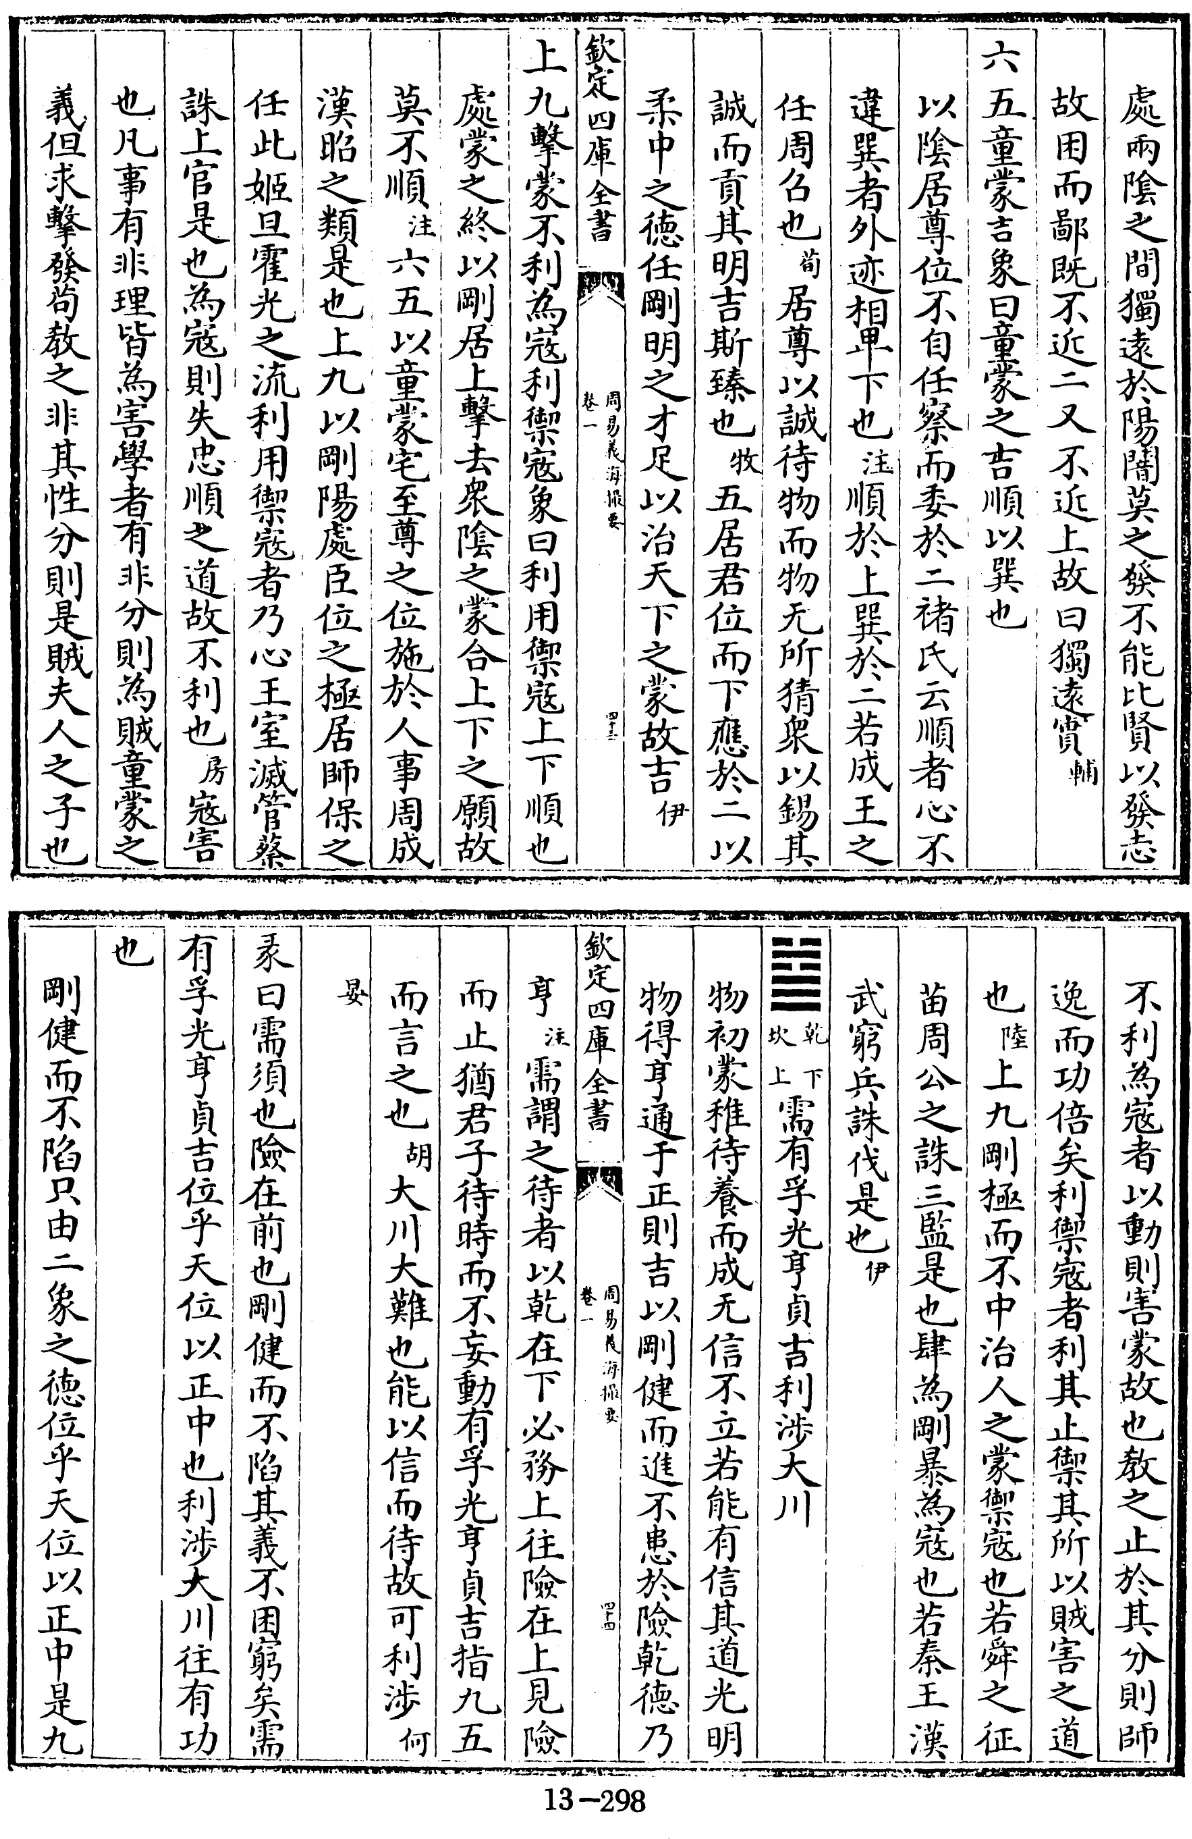 處兩陰之間獨遠於陽闇莫之發不能比賢以發志
故困而鄙既不近二又不近上故曰獨遠實輔
六五童蒙吉象曰童蒙之吉順以巽也
以陰居尊位不自任察而委於二褚氏云順者心不
違巽者外迹相卑下也注順於上巽於二若成王之
任周召也荀居尊以誠待物而物无所猜衆以錫其
誠而貢其明吉斯臻也牧五居君位而下應於二以
柔中之德任剛明之才足以治天下之蒙故吉伊
欽定四庫全書
周易義海撮要
卷一
四十三
上九擊蒙不利為寇利禦寇象曰利用禦寇上下順也
處蒙之終以剛居上擊去衆陰之蒙合上下之願故
莫不順注六五以童蒙宅至尊之位施於人事周成
漢昭之類是也上九以剛陽處臣位之極居師保之
任此姬旦霍光之流利用禦寇者乃心王室滅管蔡
誅上官是也為寇則失忠順之道故不利也房寇害
也凡事有非理皆為害學者有非分則為賊童蒙之
義但求擊發苟教之非其性分則是賊夫人之子也
不利為寇者以動則害蒙故也教之止於其分則師
逸而功倍矣利禦寇者利其止禦其所以賊害之道
也陸上九剛極而不中治人之蒙禦寇也若舜之征
苗周公之誅三監是也肆為剛暴為寇也若秦王漢
武窮兵誅伐是也伊
乾下坎上需有孚光亨貞吉利涉大川
物初蒙稚待養而成无信不立若能有信其道光明
物得亨通于正則吉以剛健而進不患於險乾德乃
欽定四庫全書
周易義海撮要
卷一
四十四
亨注需謂之待者以乾在下必務上往險在上見險
而止猶君子待時而不妄動有孚光亨貞吉指九五
而言之也胡大川大難也能以信而待故可利涉何
晏
彖曰需須也險在前也剛健而不陷其義不困窮矣需
有孚光亨貞吉位乎天位以正中也利涉大川往有功
也
剛健而不陷只由二象之德位乎天位以正中是九
13-298